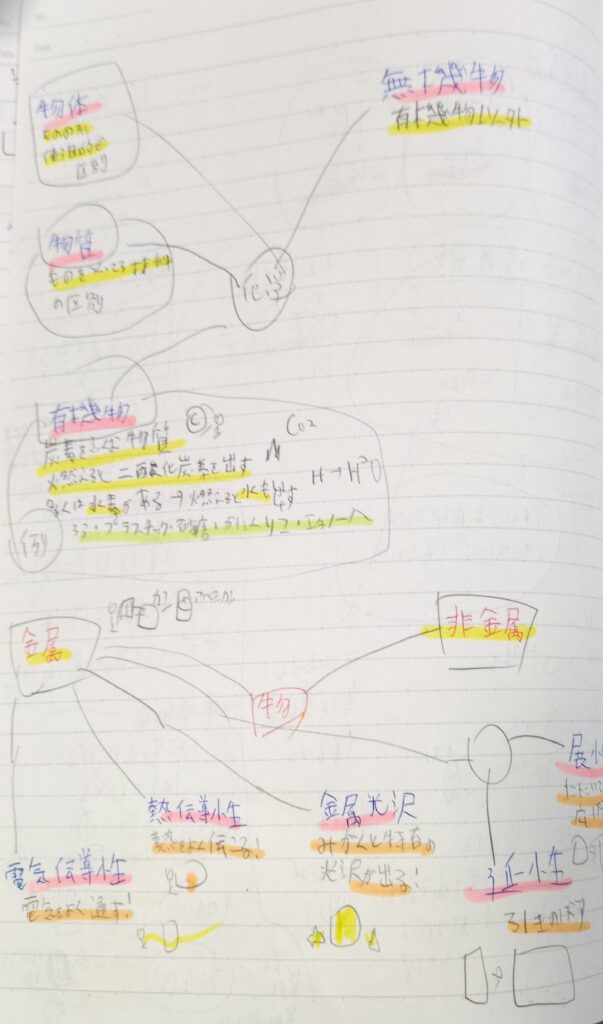 物体
ものの形
使う目的など
区別
無機物
有機物以外
物質
ものをつくる材料
の区別
化学
有機物
炭素をふくむ物質
C
CO2
燃えると二酸化炭素を出す
H→H²O
多くは水素がある→燃えると水も出す
例
ろう・プラスチック・砂糖・かたくりこ・エタノール
金属
非金属
物
熱伝導性
熱をよく伝える!
金属光沢
みがくと特有の
光沢が出る!
展性
電気伝導性
電気をよく通す!
延性
引きのばす